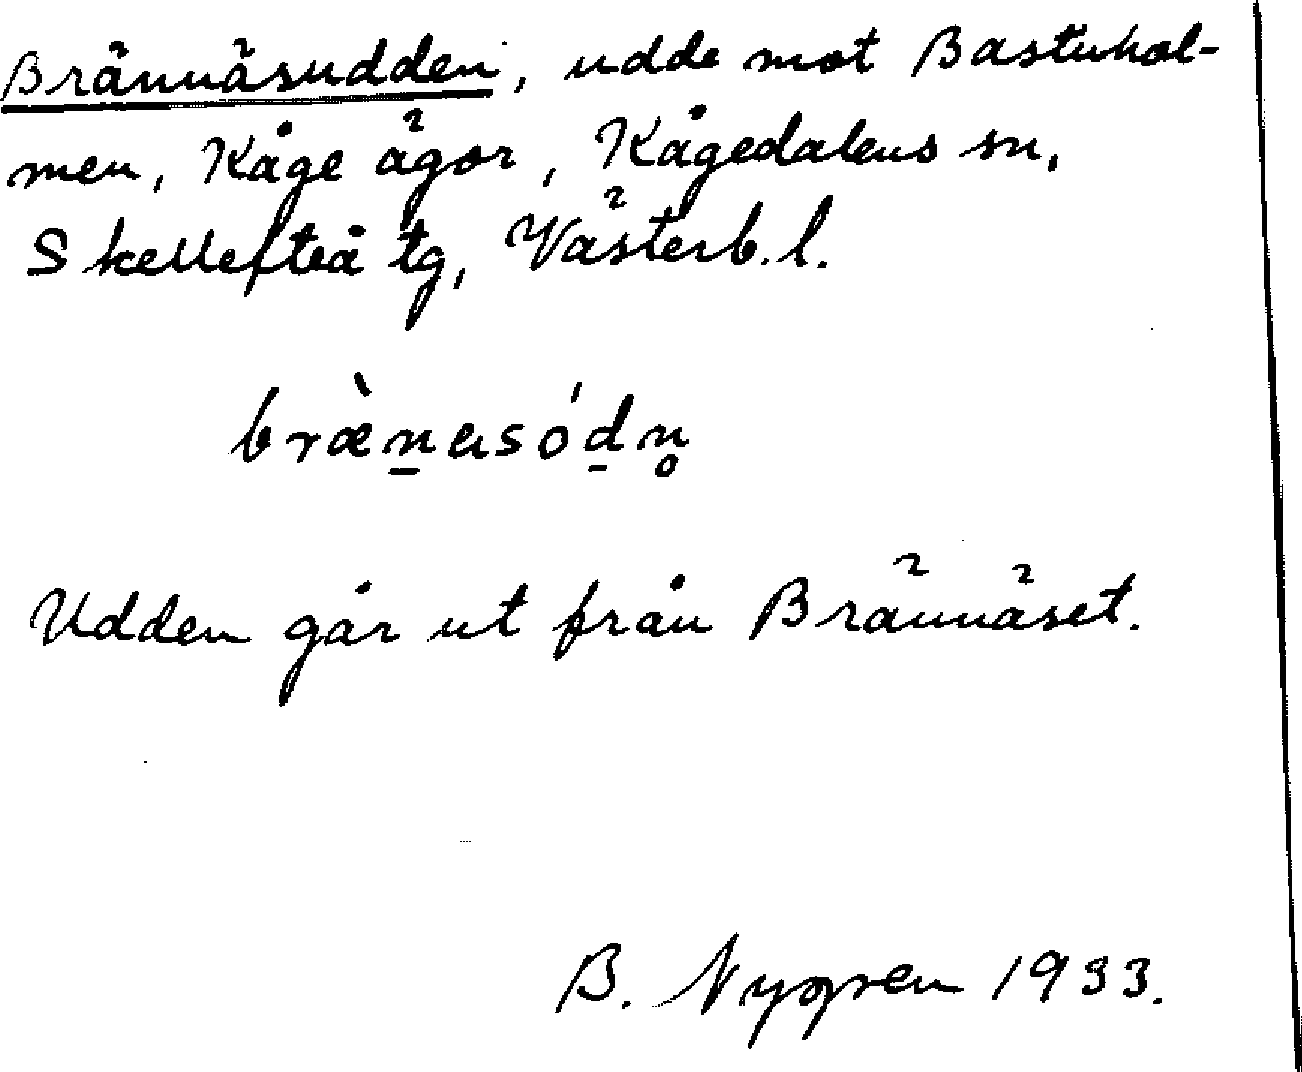 Brännäsudden, udde mot Bastuhol-
men, Kåge ägor, Kågedalens sn,
Skellefteå tg, Västerb. l.
bræ̀n̠asód̠n̥
Udden går ut från Brännäset.
B. Nygren 1933.